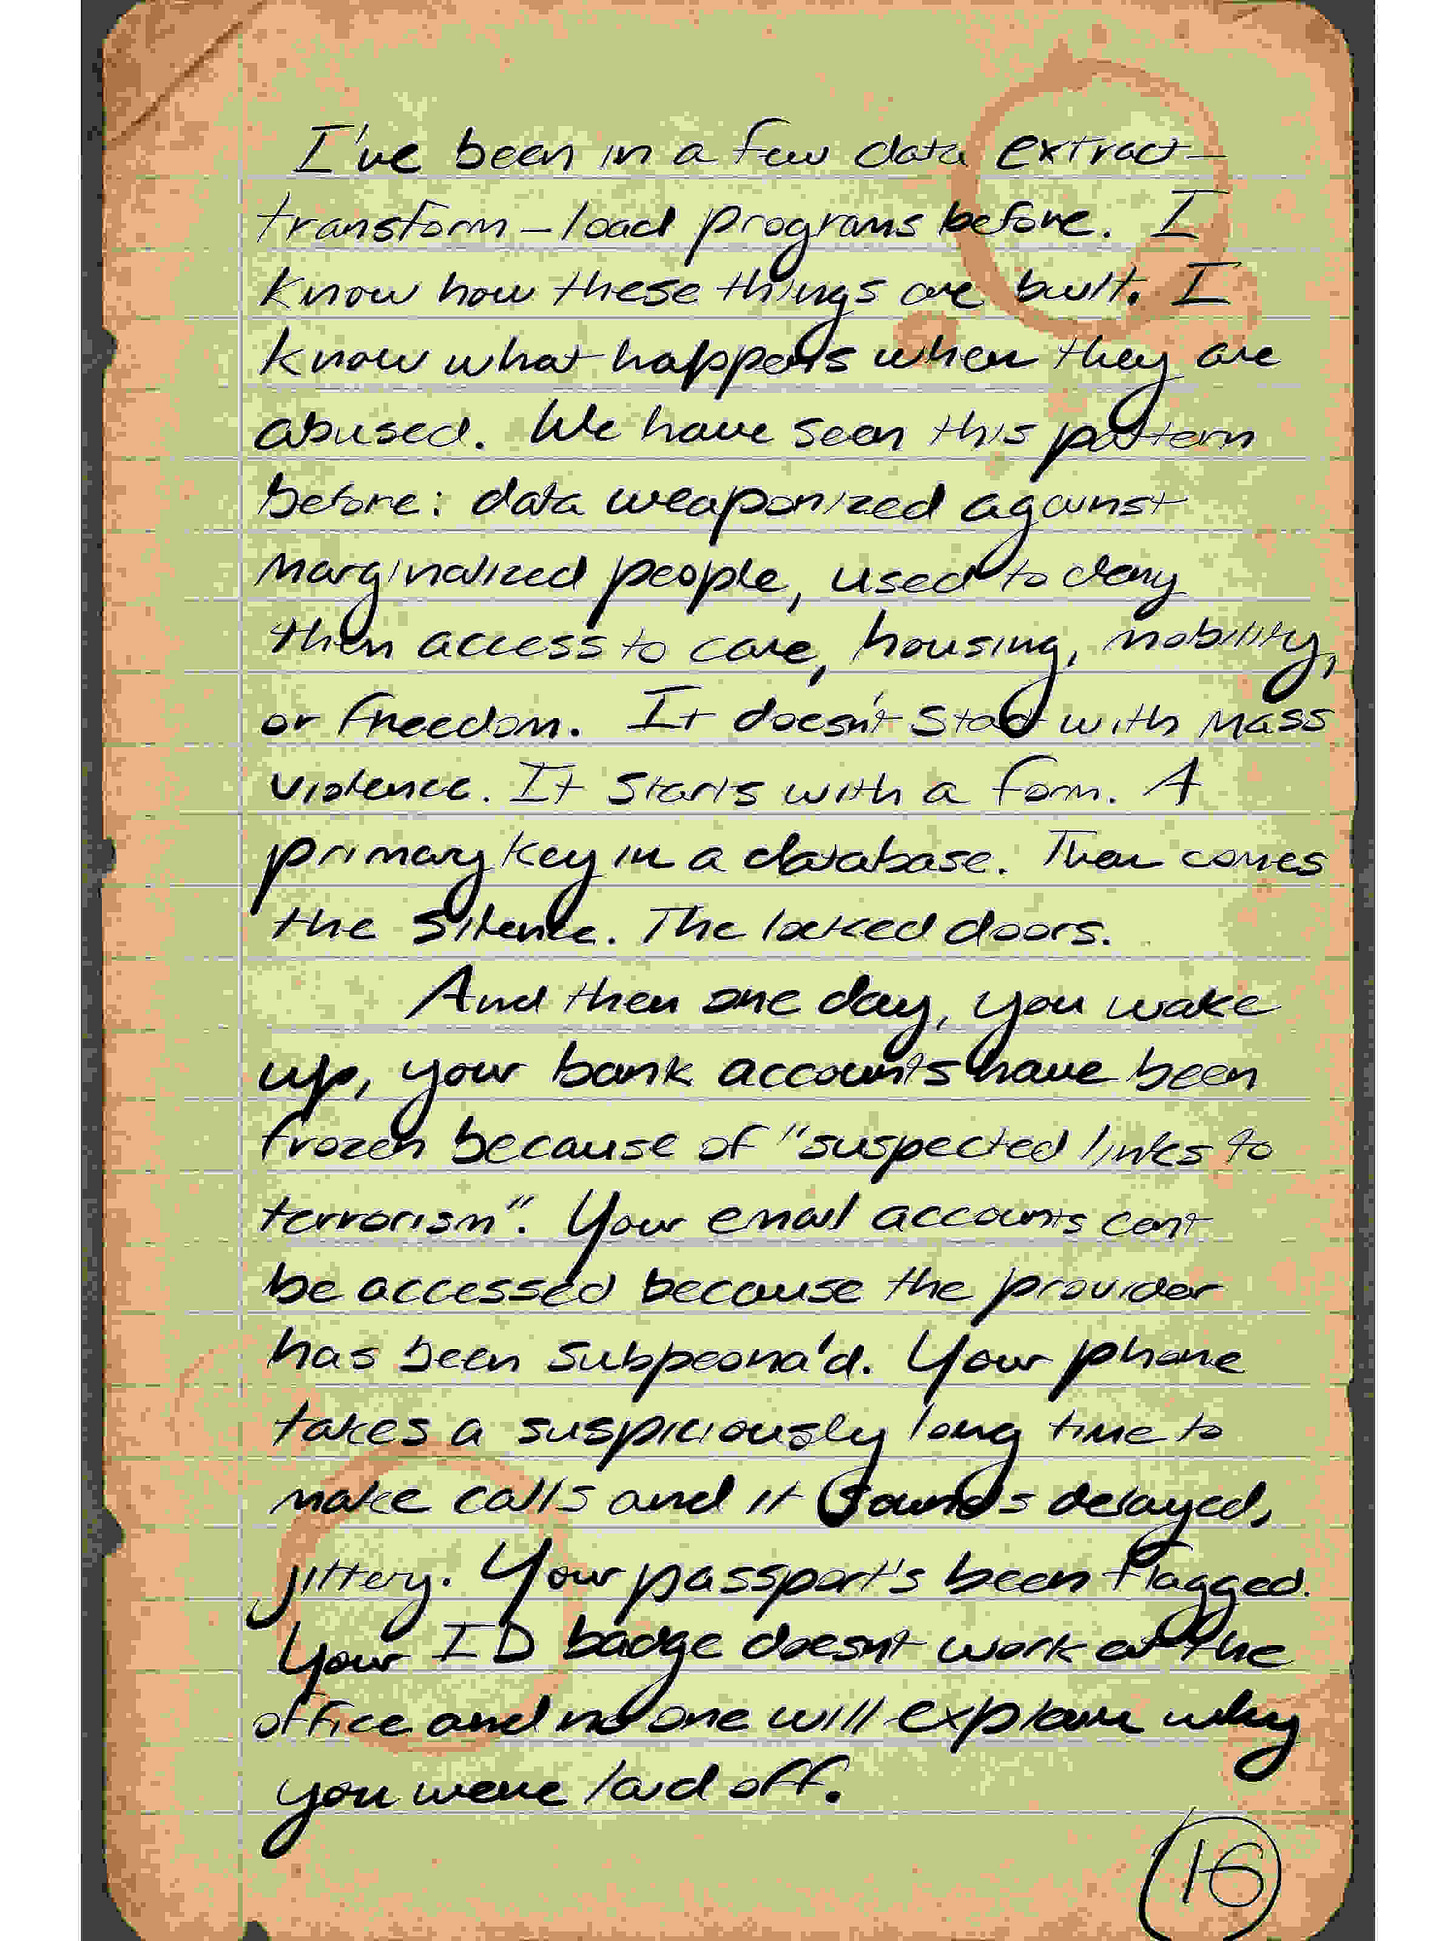 I've been in a few data extract-
transform-load programs before. I
know how these things are built. I
know what happens when they are
abused. We have seen this pattern
before: data weaponized against
marginalized people, used to deny
them access to care, housing, mobility,
or freedom. It doesn't start with mass
violence. It starts with a form. A
primary key in a database. Then comes
the silence. The locked doors.
And then one day, you wake
up, your bank accounts have been
frozen because of "suspected links to
terrorism". Your email accounts cant
be accessed because the provider
has been subpeona'd. Your phone
takes a suspiciously long time to
make calls and it sounds delayed,
jittery. Your passport's been flagged.
Your ID badge doesnt work at the
office and no one will explain why
you were laid off.
16